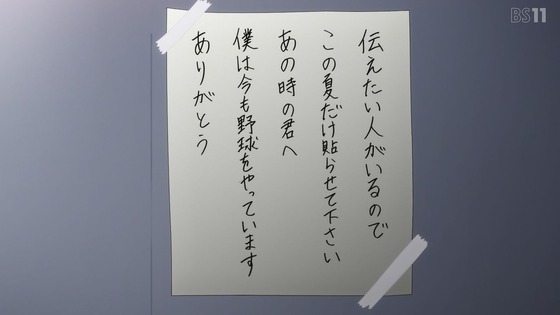 BS11
伝えたい人がいるので
この夏だけ貼らせて下さい
あの時の君へ
僕は今も野球をやっています
ありがとう